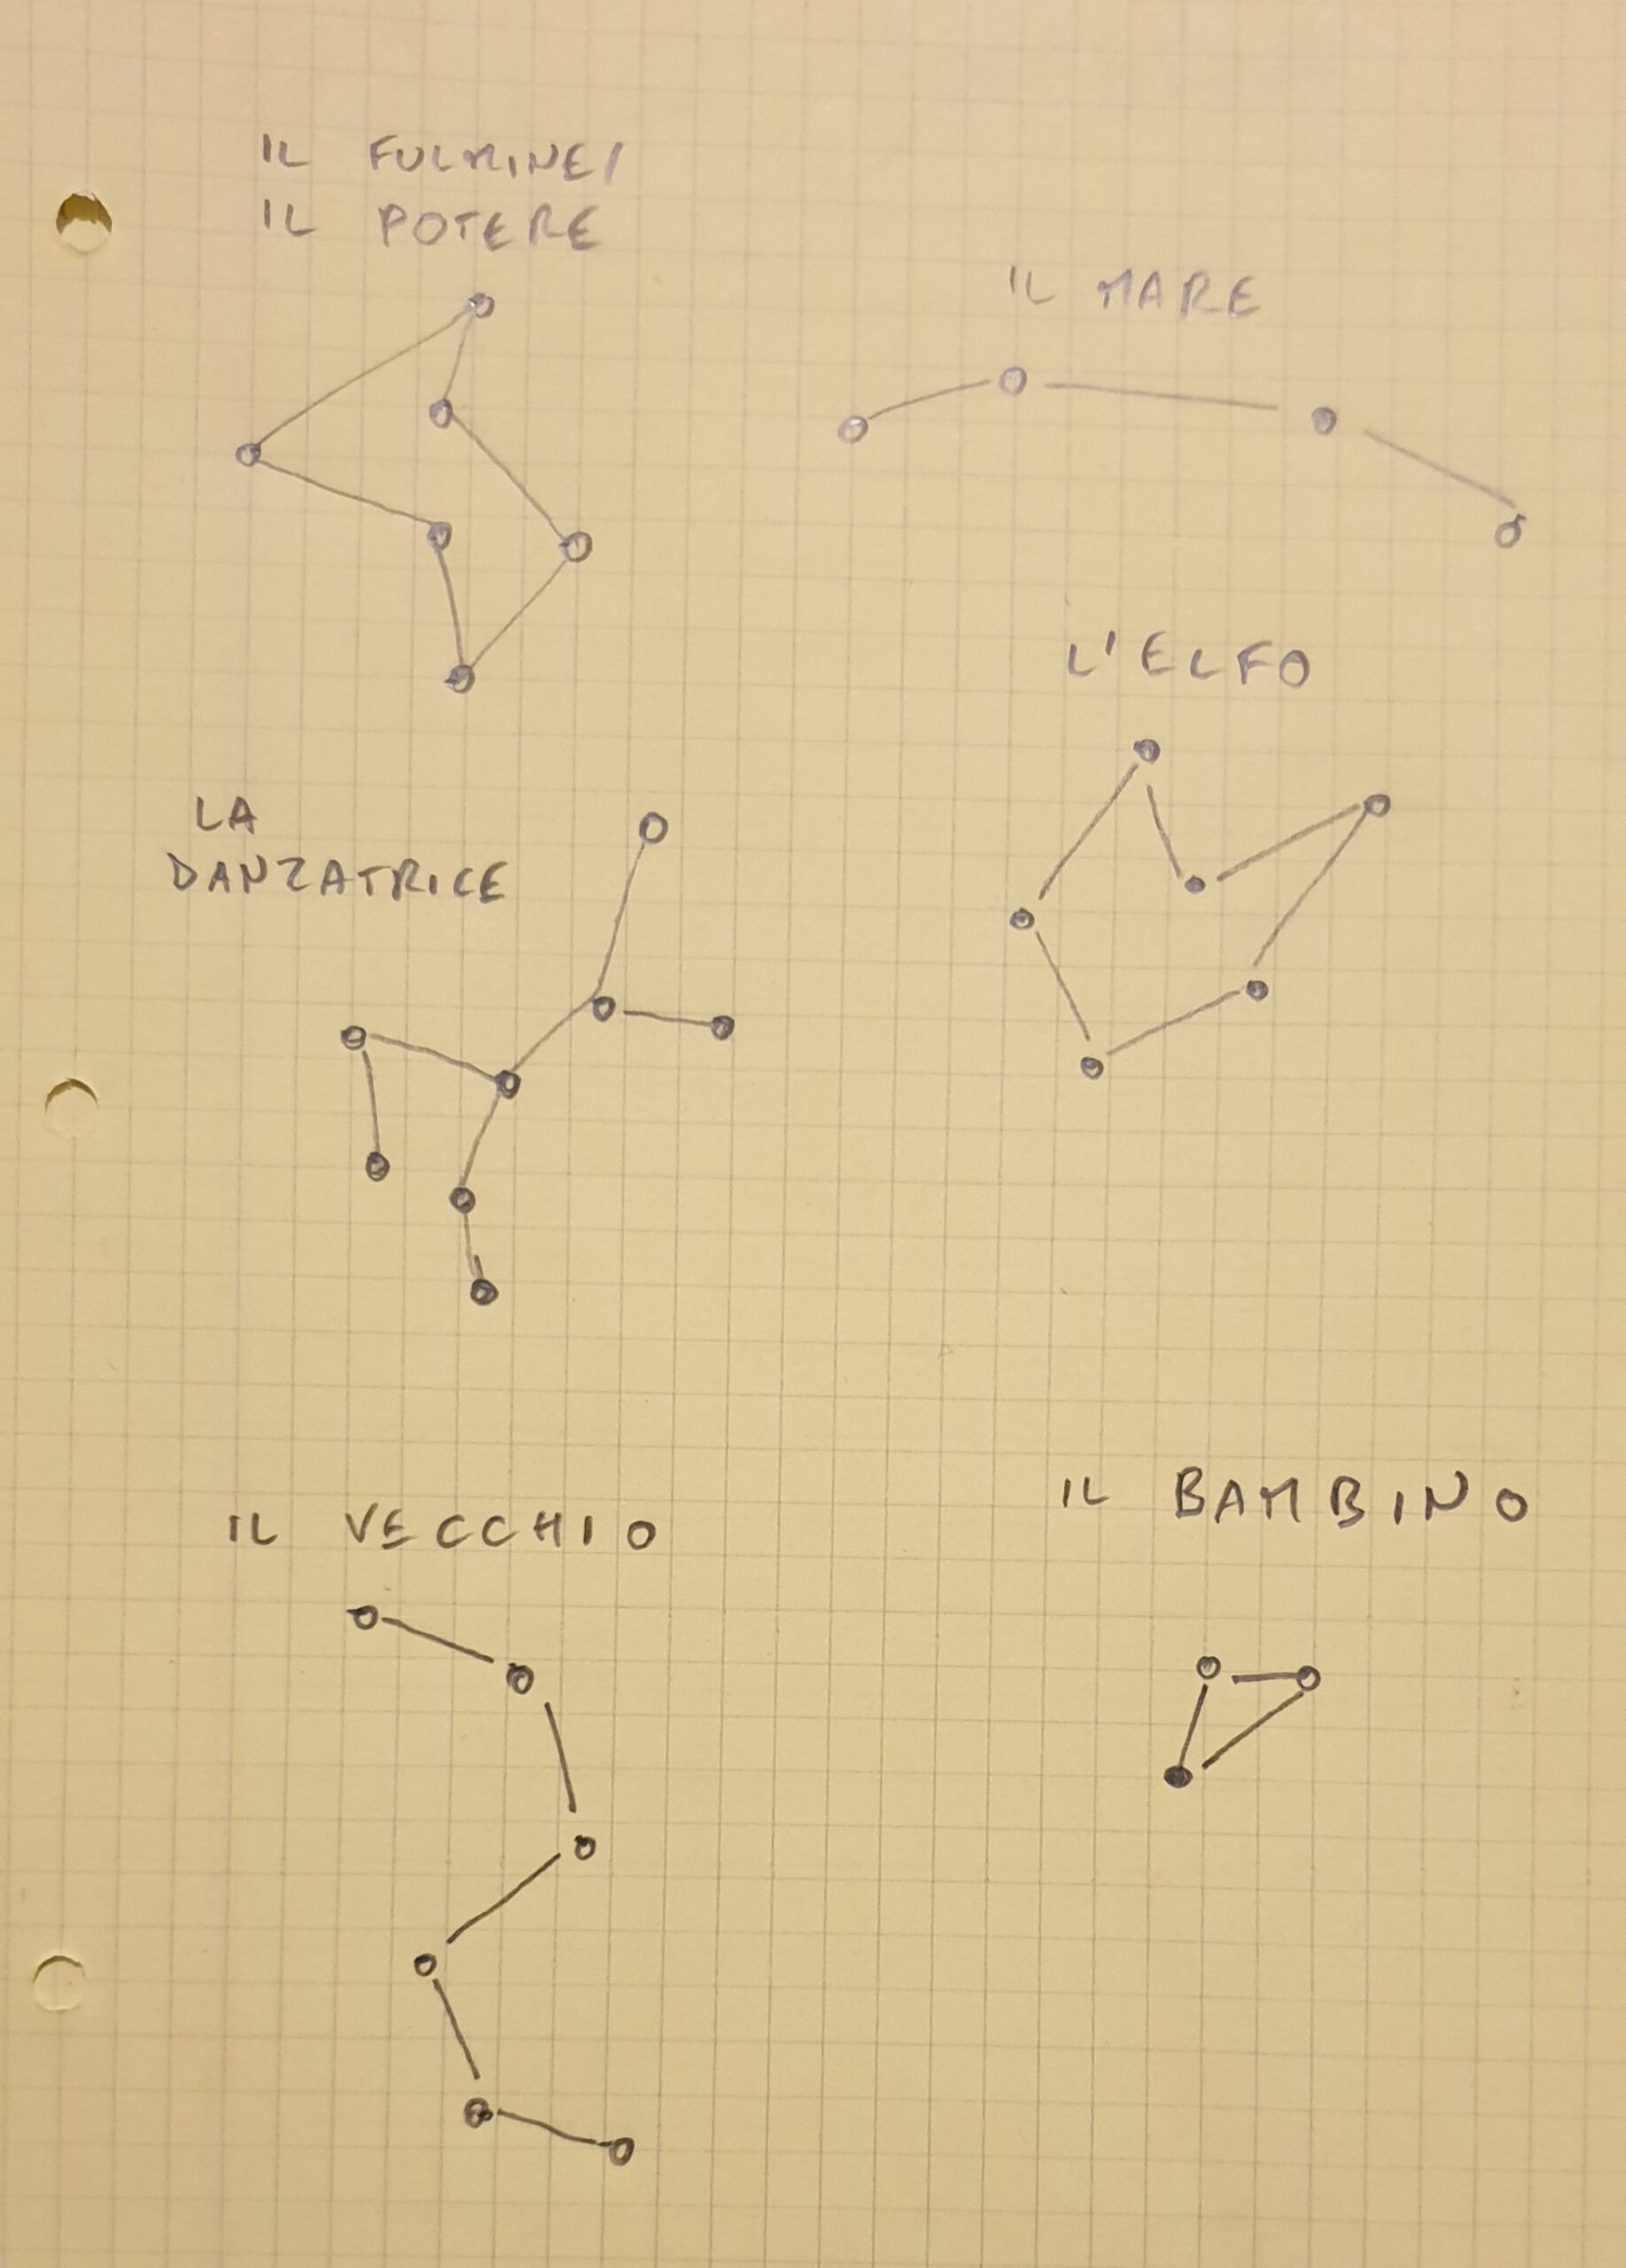 IL FULMINE/
IL POTERE
IL MARE
L'ELFO
LA
DANZATRICE
IL VECCHIO
IL BAMBINO